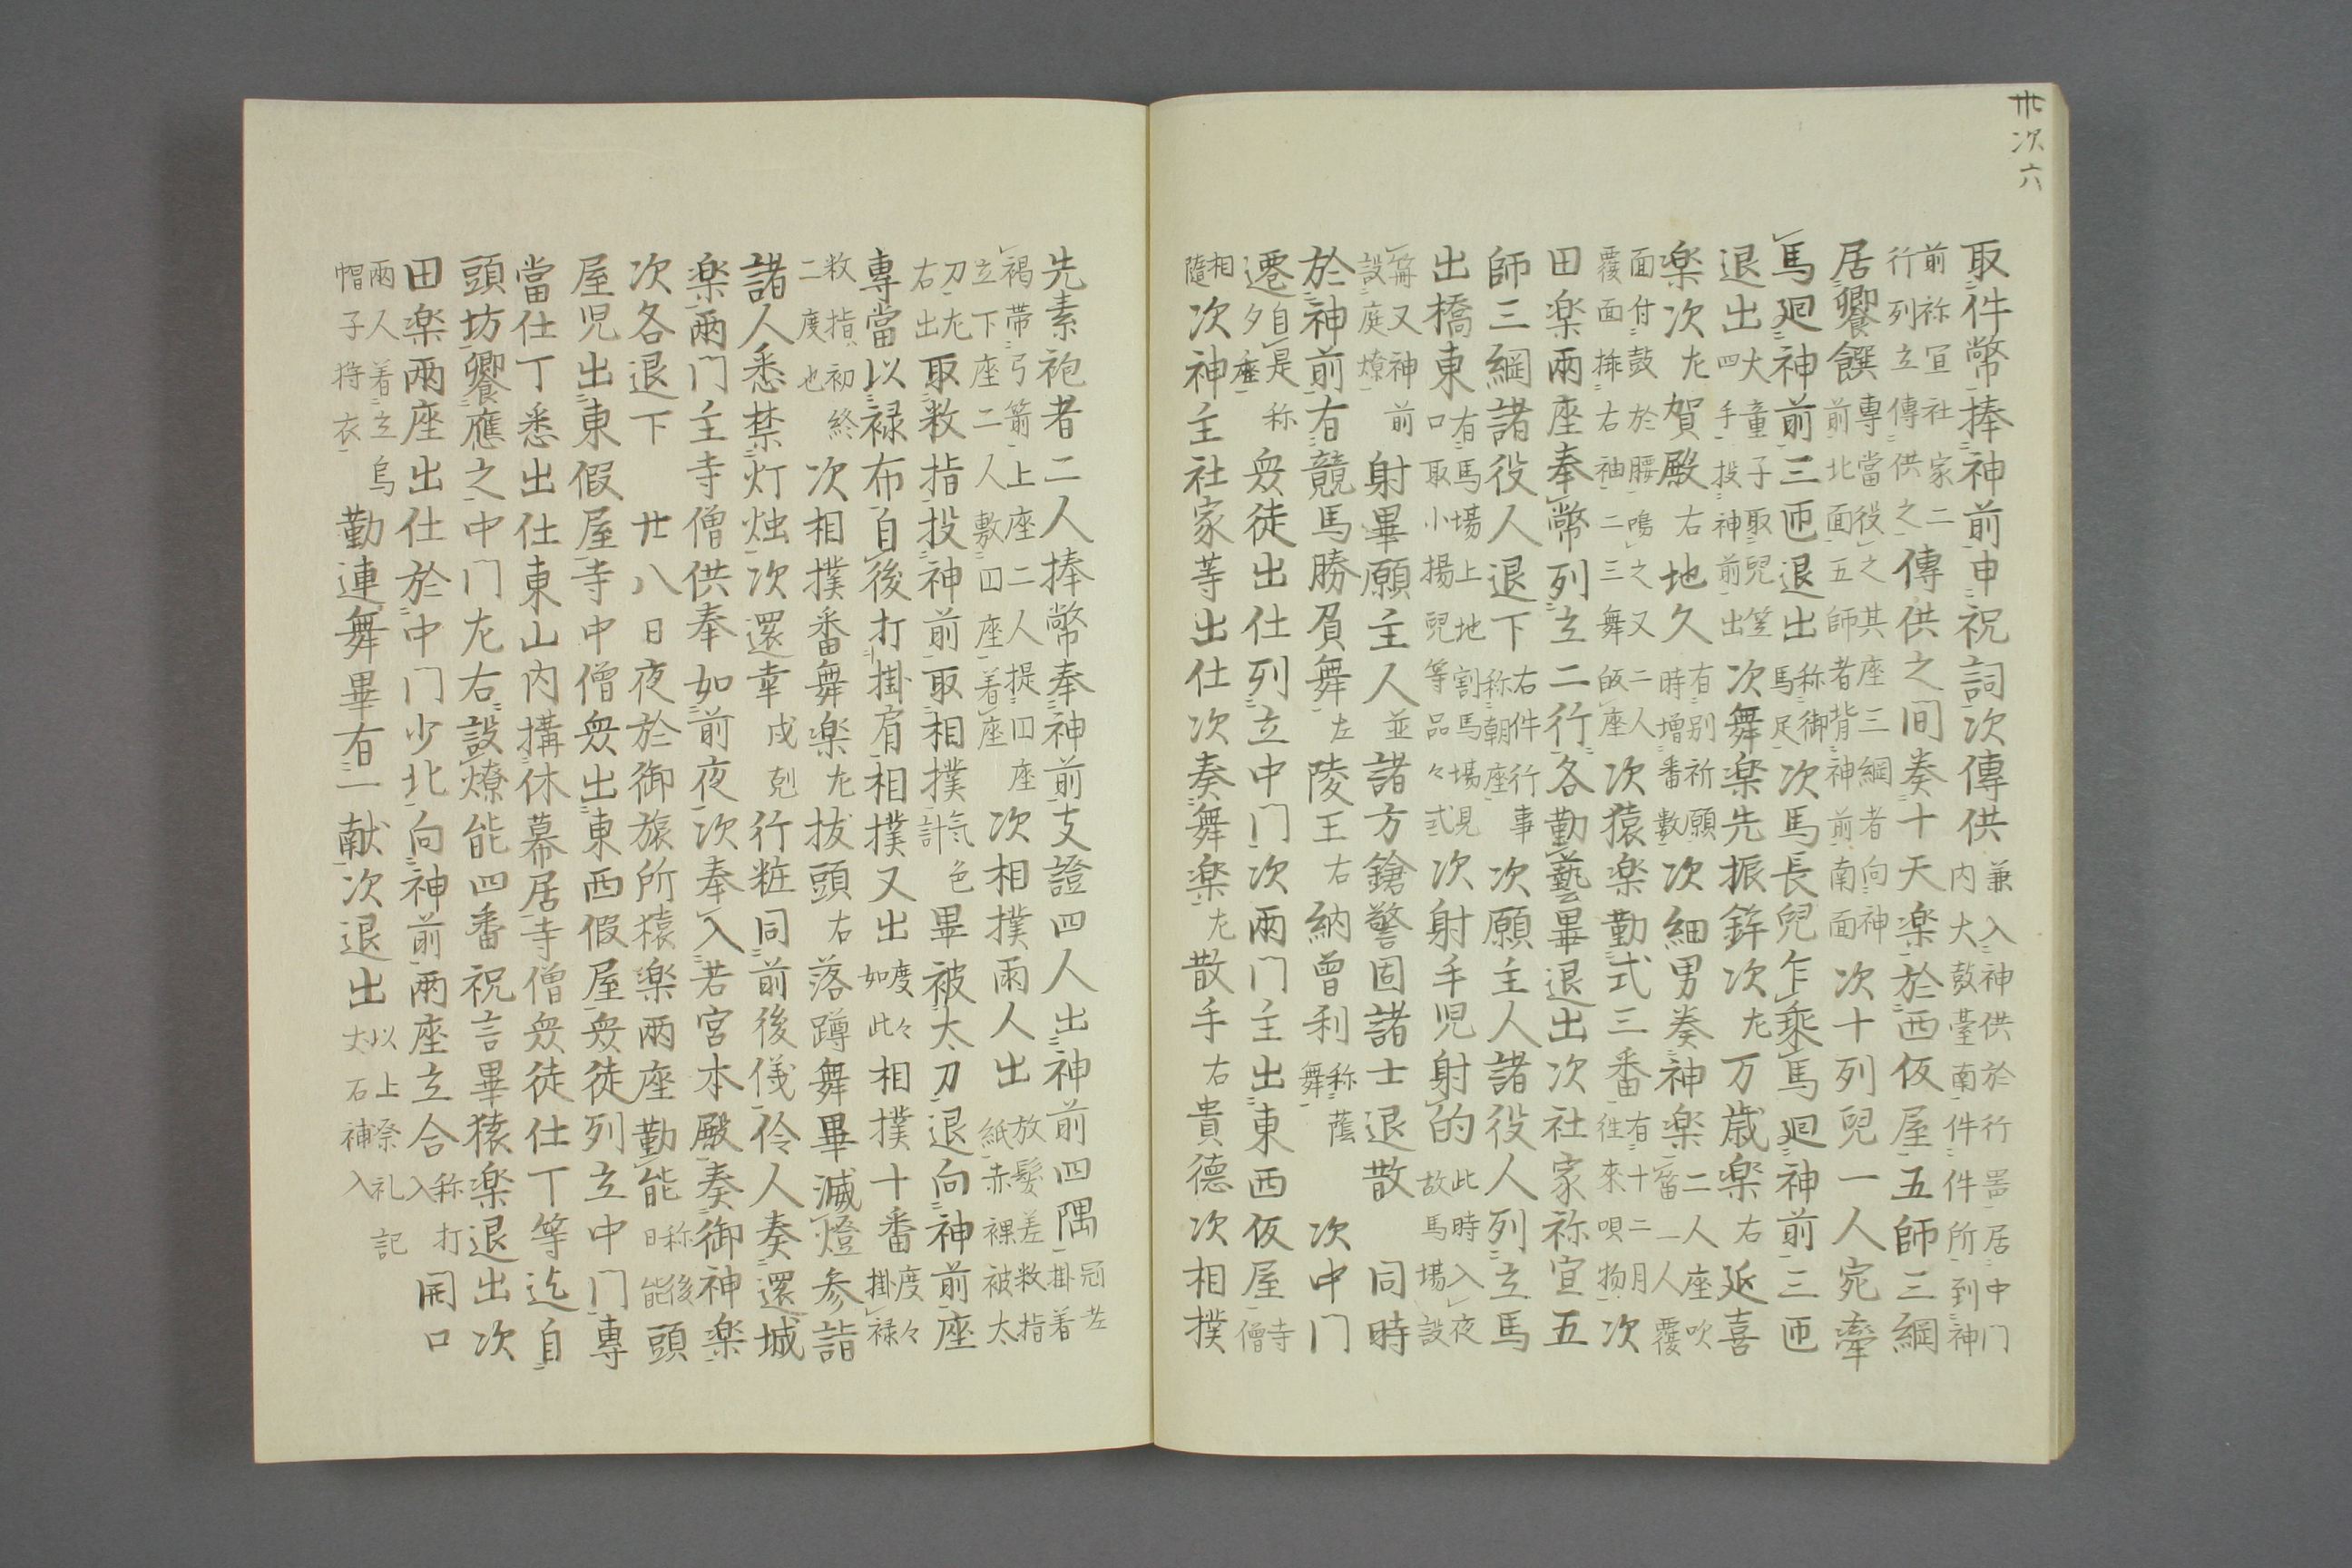 卅次六
取件幣捧神前申祝詞次傳供兼入神供於行器居中门内大鼓臺南件件所到神
前祢宜社家二行列立傳供之傳供之间奏十天楽於西仮屋五師三綱
居饗饌專當役之其座三綱者向神前北面五師者背神前南面次十列兒一人宛牽
馬廻神前三匝退出称御馬足次馬長兒乍乗馬廻神前三匝
退出大童子取兒笠四手投神前出次舞楽先振鉾次左万歳楽右延喜
楽次左賀殿右地久有別祈願時増番数次細男奏神楽二人座吹笛一人覆
面付鼓於腰鳴之又二人覆面捧右袖二三舞皈座次猿楽勤式三番有十二月往来唄物次
田楽兩座奉幣列立二行各勤藝畢退出次社家祢宜五
師三綱諸役人退下右件行事称朝座次願主人諸役人列立馬
出橋東有馬場上地割馬場見口取小揚兒等品々式次射手児射的此時入夜故馬場設
籌又神前設庭燎射畢願主人並諸方鎗警固諸士退散　同時
於神前有競馬勝負舞左陵王右納曽利称蔭舞　次中门
遷自是称夕座衆徒出仕列立中门次兩门主出東西仮屋寺僧
相隨次神主社家等出仕次奏舞楽左散手右貴德次相撲
先素袍者二人捧幣奉神前支證四人出神前四隅冠老掛着
褐帯弓箭上座二人提四座立下座二人敷四座着座次相撲兩人出放髮差数指紙赤裸被太
刀左右出取数指投神前取相撲氣色計畢被太刀退向神前座
專當以禄布自後打掛肩相撲又出度々如此相撲十番度々掛禄
数指初終二度也次相撲番舞楽左抜頭右落蹲舞畢滅燈参詣
諸人悉禁灯烛次還幸戌剋行粧同前後儀伶人奏還城
楽兩门主寺僧供奉如前夜次奉入若宮本殿奏御神楽
次各退下　廿八日夜於御旅所猿楽兩座勤能称後日能頭
屋児出東假屋寺中僧衆出東西假屋衆徒列立中门專
當仕丁悉出仕東山内搆休幕居寺僧衆徒仕丁等迄自
頭坊饗應之中门左右設燎能四番祝言畢猿楽退出次
田楽兩座出仕於中门少北向神前兩座立合称打入開口
兩人着立烏帽子狩衣勤連舞畢有一献次退出以上祭礼記大石神入